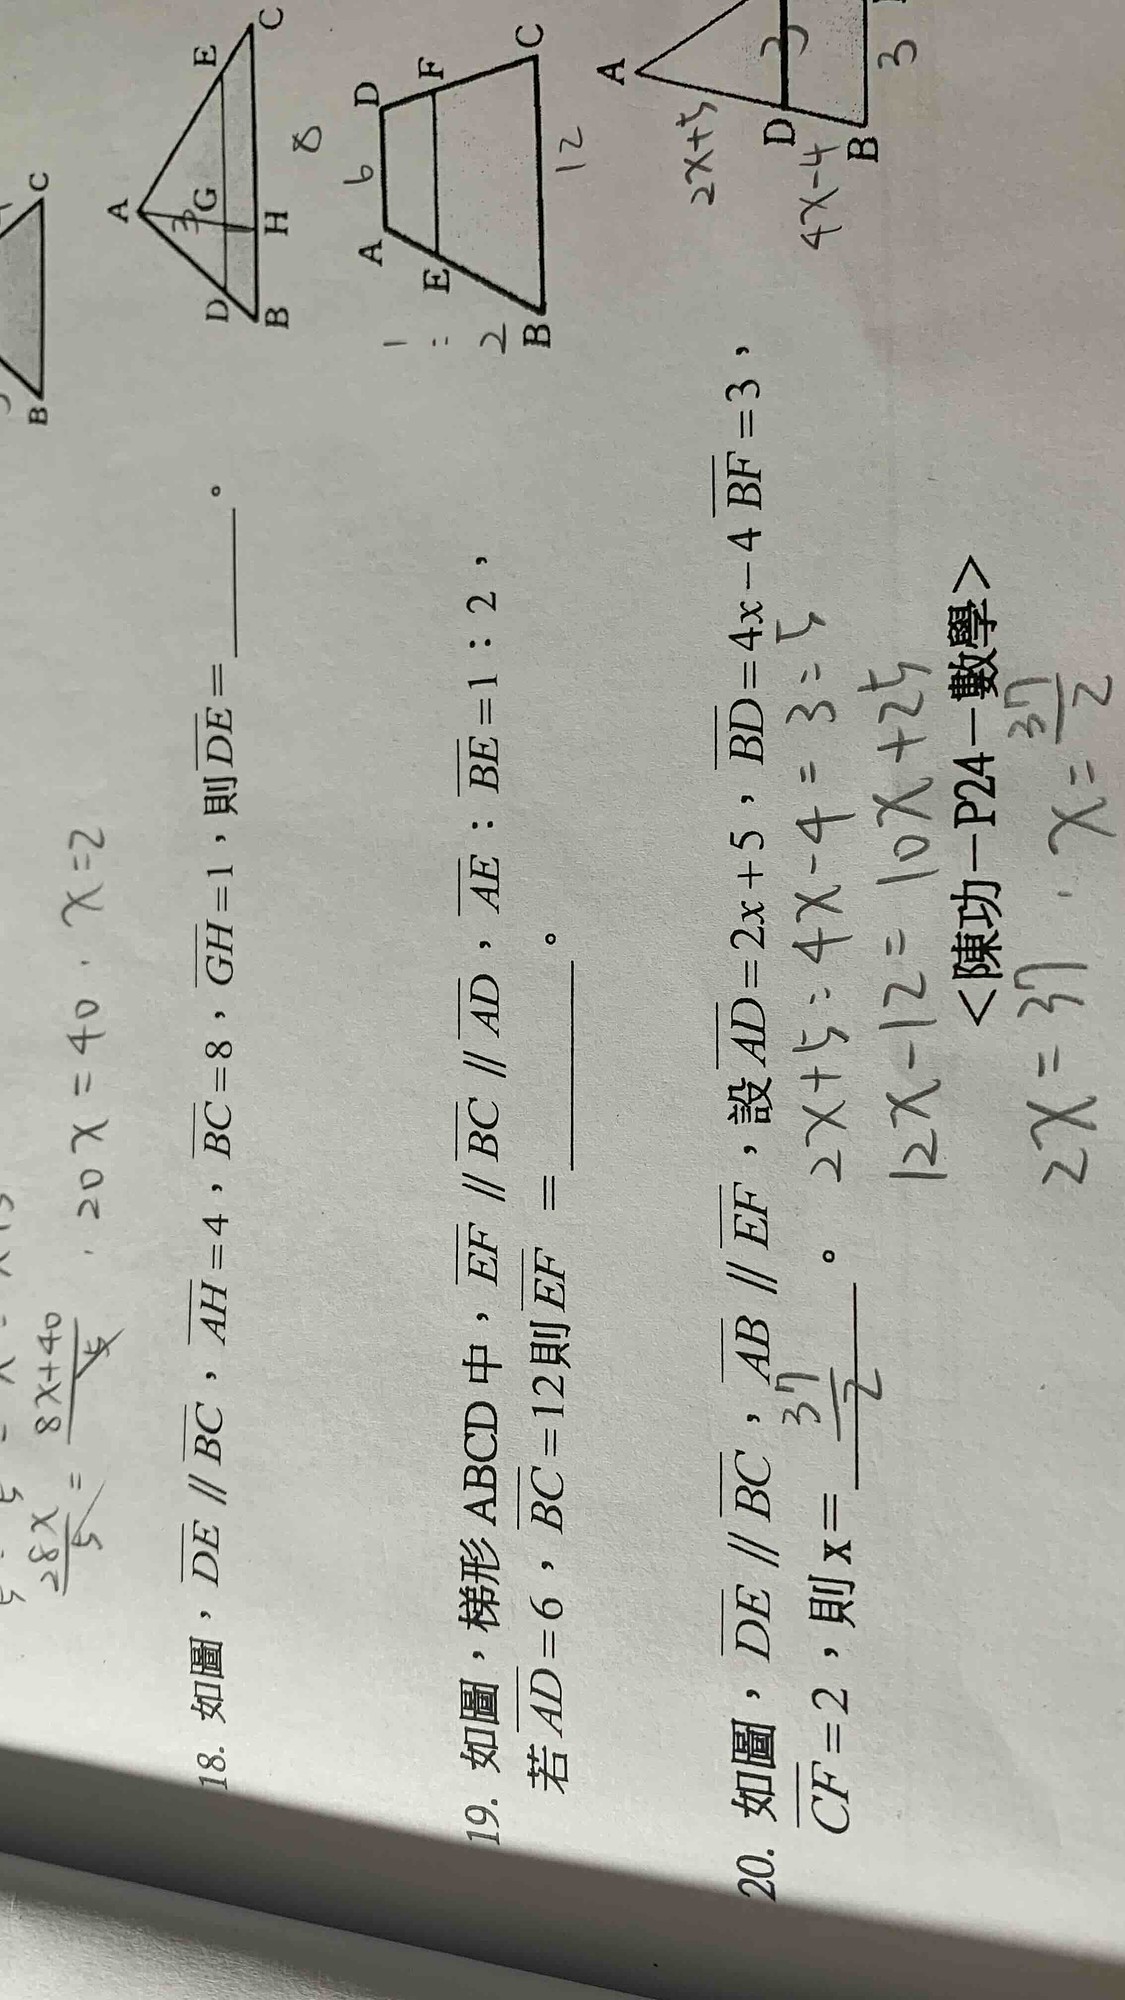 28x/5 = 8x+40/5
, 20x=40 , x=2
B C
18. 如圖，DE // BC，AH=4，BC=8，GH=1，則DE=______。
A
3
D G E
B H C
8
19. 如圖，梯形 ABCD 中，EF // BC // AD，AE：BE=1：2，
若AD=6，BC=12則EF =______。
6
A D
1
:
E F
2
B C
12
20. 如圖，DE // BC，AB // EF，設AD=2x+5，BD=4x-4 BF=3，
CF=2，則x=37/2。
2x+5:4x-4=3:5
12x-12=10x+25
<陳功－P24－數學>
2x=37 , x=37/2
A
2x+5
D 3
4x-4
B
3